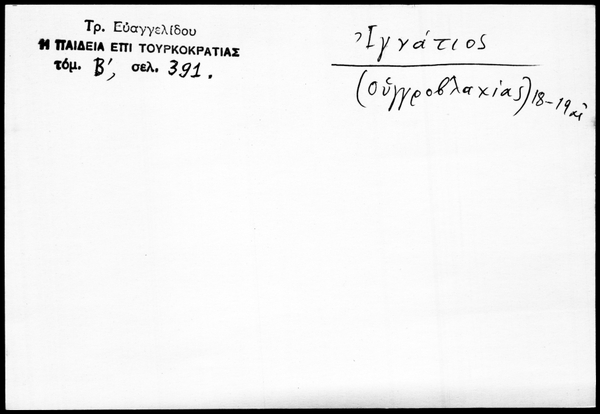 Τρ. Εὐαγγελίδου
Η ΠΑΙΔΕΙΑ ΕΠΙ ΤΟΥΡΚΟΚΡΑΤΙΑΣ
τόμ. Β', σελ. 391.
Ἰγνάτιος
(Οὐγγροβλαχίας) 18-19 αἰ